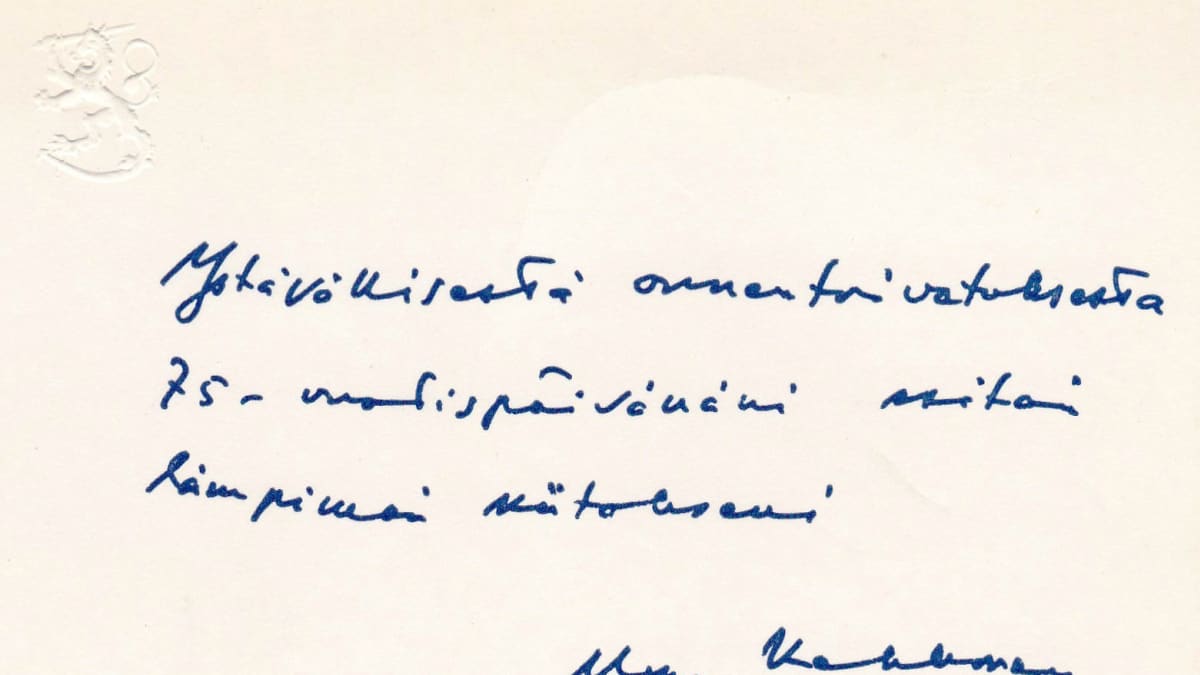 Ystävällisestä onnentoivotuksesta
75-vuotispäivänäni esitän
lämpimän kiitokseni
Kekkonen